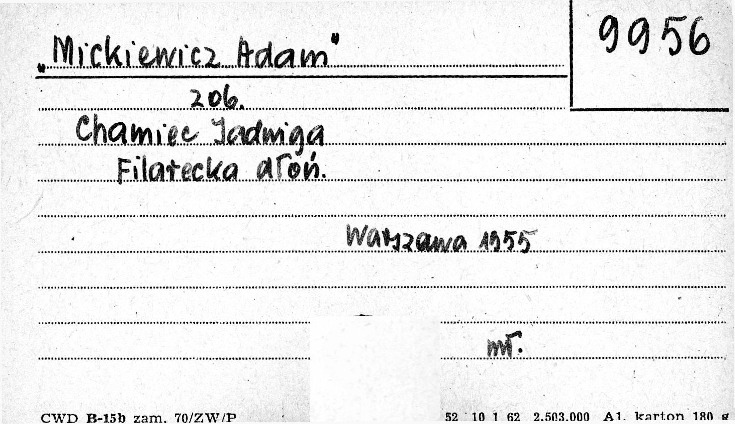 „Mickiewicz Adam"
9956
206.
Chamiec Jadwiga
Filarecka dłoń.
Warszawa 1955
mł.
CWD B-15b zam. 70/ZW/P
52 10 1 62 2.503.000 A1. karton 180 g